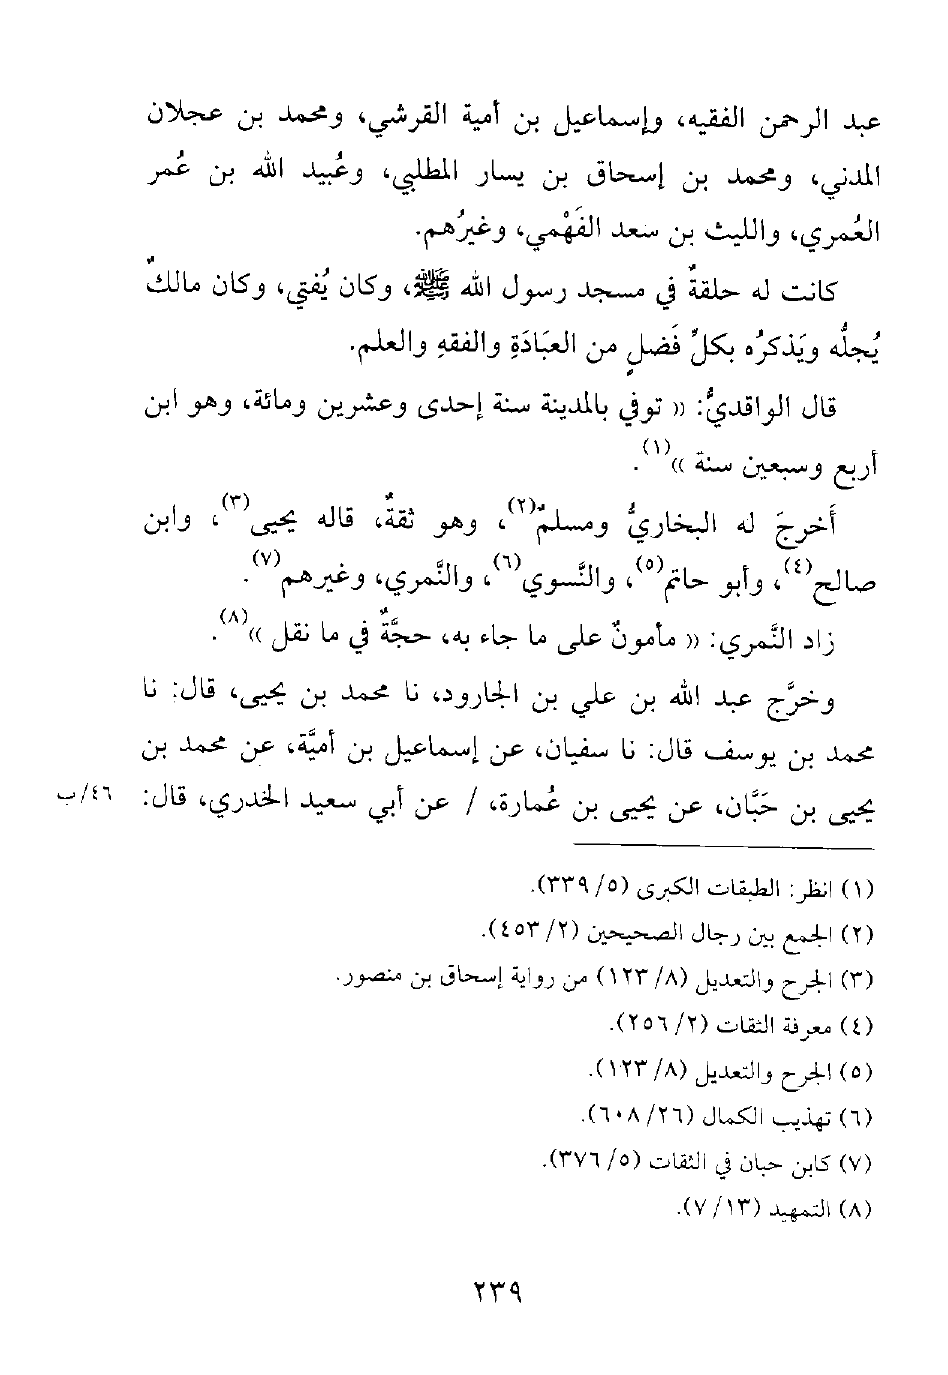 عبد الرحمن الفقيه، وإسماعيل بن أمية القرشي، ومحمد بن عجلان
المدني، ومحمد بن إسحاق بن يسار المطلبي، وعُبيد الله بن عُمر
العُمري، والليث بن سعد الفَهْمي، وغيرُهم.
كانت له حلقةٌ في مسجد رسول الله ﷺ، وكان يُفتي، وكان مالكٌ
يُجلُّه ويَذكرُه بكلِّ فَضلٍ من العبَادَةِ والفقهِ والعلم.
قال الواقديُّ: « توفي بالمدينة سنة إحدى وعشرين ومائة، وهو ابن
أربع وسبعين سنة »(١).
أَخرجَ له البخاريُّ ومسلمٌ(٢)، وهو ثقةٌ، قاله يحيى(٣)، وابن
صالح(٤)، وأبو حاتم(٥)، والنَّسوي(٦)، والنَّمري، وغيرهم(٧).
زاد النَّمري: « مأمونٌ على ما جاء به، حجَّةٌ في ما نقل »(٨).
وخرَّج عبد الله بن علي بن الجارود، نا محمد بن يحيى، قال: نا
محمد بن يوسف قال: نا سفيان، عن إسماعيل بن أميَّة، عن محمد بن
يحيى بن حَبَّان، عن يحيى بن عُمارة، / عن أبي سعيد الخدري، قال: ٤٦/ب
(١) انظر: الطبقات الكبرى (٥/ ٣٣٩).
(٢) الجمع بين رجال الصحيحين (٢/ ٤٥٣).
(٣) الجرح والتعديل (٨/ ١٢٣) من رواية إسحاق بن منصور.
(٤) معرفة الثقات (٢/ ٢٥٦).
(٥) الجرح والتعديل (٨/ ١٢٣).
(٦) تهذيب الكمال (٢٦/ ٦٠٨).
(٧) كابن حبان في الثقات (٥/ ٣٧٦).
(٨) التمهيد (١٣/ ٧).
٢٣٩